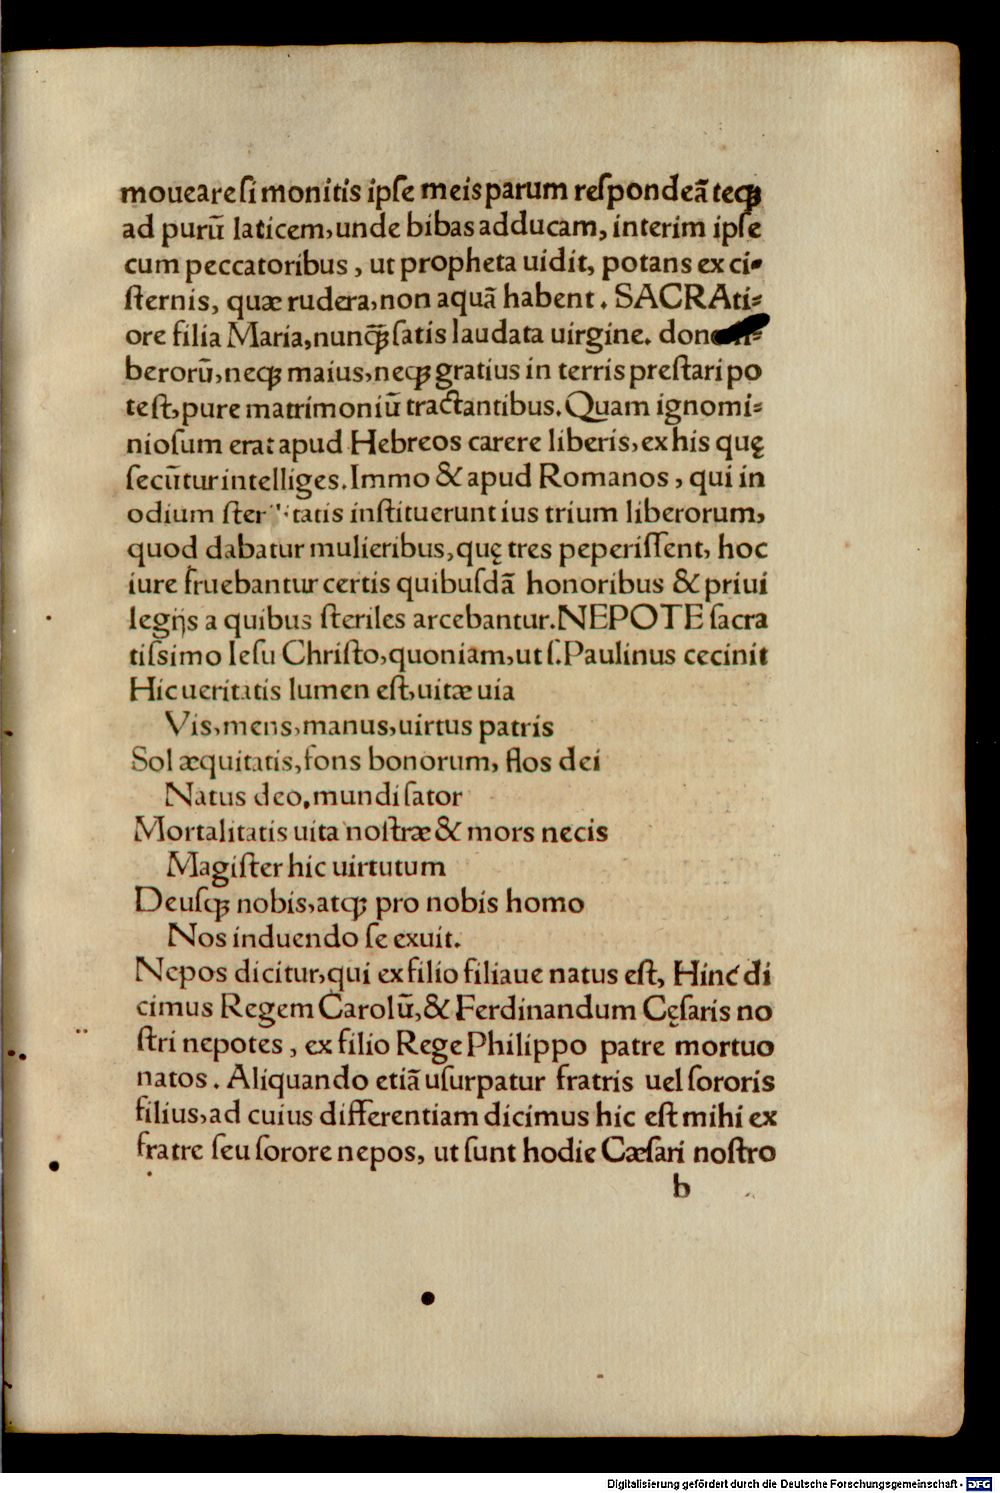 moueare si monitis ipse meis parum respondeā teqꝫ
ad purū laticem, unde bibas adducam, interim ipse
cum peccatoribus, ut propheta uidit, potans ex ci-
sternis, quæ rudera, non aquā habent. SACRAti-
ore filia Maria, nunqꝫ̄ satis laudata uirgine.
berorū, neqꝫ maius, neqꝫ gratius in terris prestari po
test, pure matrimoniū tractantibus. Quam ignomi-
niosum erat apud Hebreos carere liberis, ex his quę
secūtur intelliges. Immo & apud Romanos, qui in
odium instituerunt ius trium liberorum,
quod dabatur mulieribus, quę tres peperissent, hoc
iure fruebantur certis quibusdā honoribus & priui
legijs a quibus steriles arcebantur. NEPOTE sacra
tissimo Iesu Christo, quoniam, ut s. Paulinus cecinit
Hic ueritatis lumen est, uitæ uia
Vis, mens, manus, uirtus patris
Sol æquitatis, fons bonorum, flos dei
Natus deo, mundi sator
Mortalitatis uita nostræ & mors necis
Magister hic uirtutum
Deusqꝫ nobis, atqꝫ pro nobis homo
Nos induendo se exuit.
Nepos dicitur, qui ex filio filiaue natus est, Hinc di
cimus Regem Carolū, & Ferdinandum Cęsaris no
stri nepotes, ex filio Rege Philippo patre mortuo
natos. Aliquando etiā usurpatur fratris uel sororis
filius, ad cuius differentiam dicimus hic est mihi ex
fratre seu sorore nepos, ut sunt hodie Cæsari nostro
b
Digitalisierung gefördert durch die Deutsche Forschungsgemeinschaft - DFG